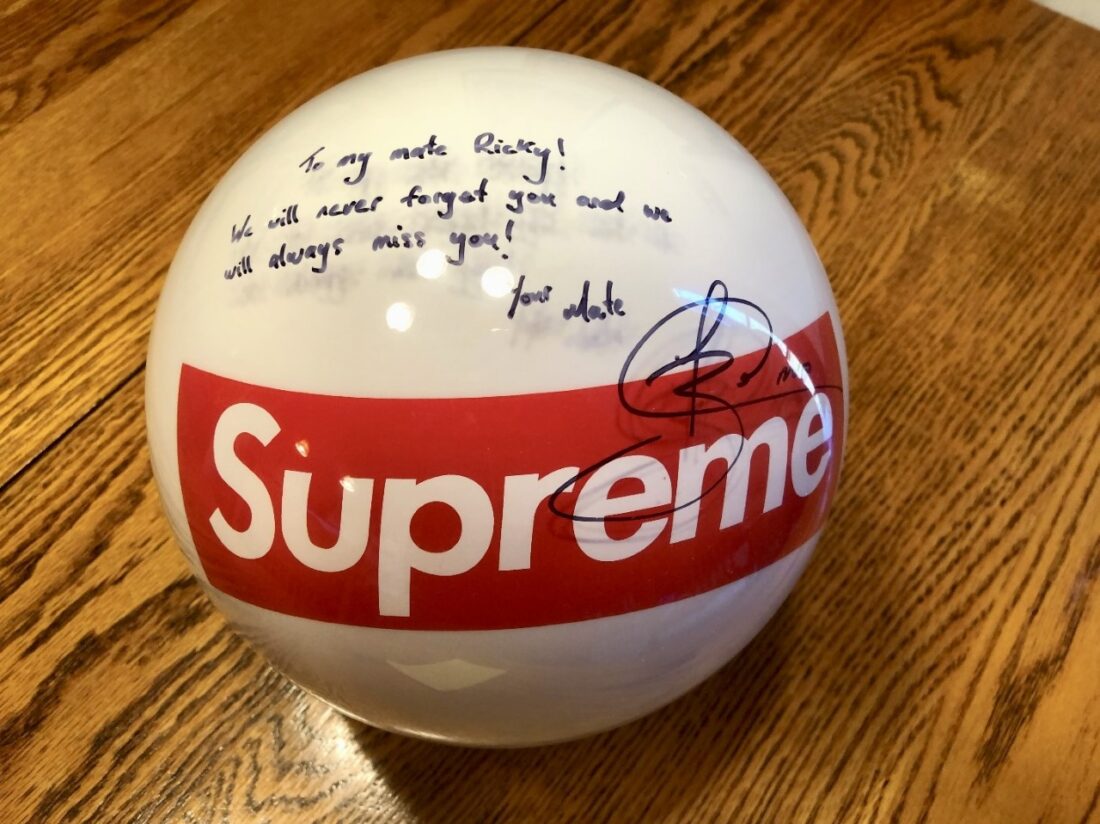 To my mate Ricky!
We will never forget you and we
will always miss you!
Your Mate
Supreme